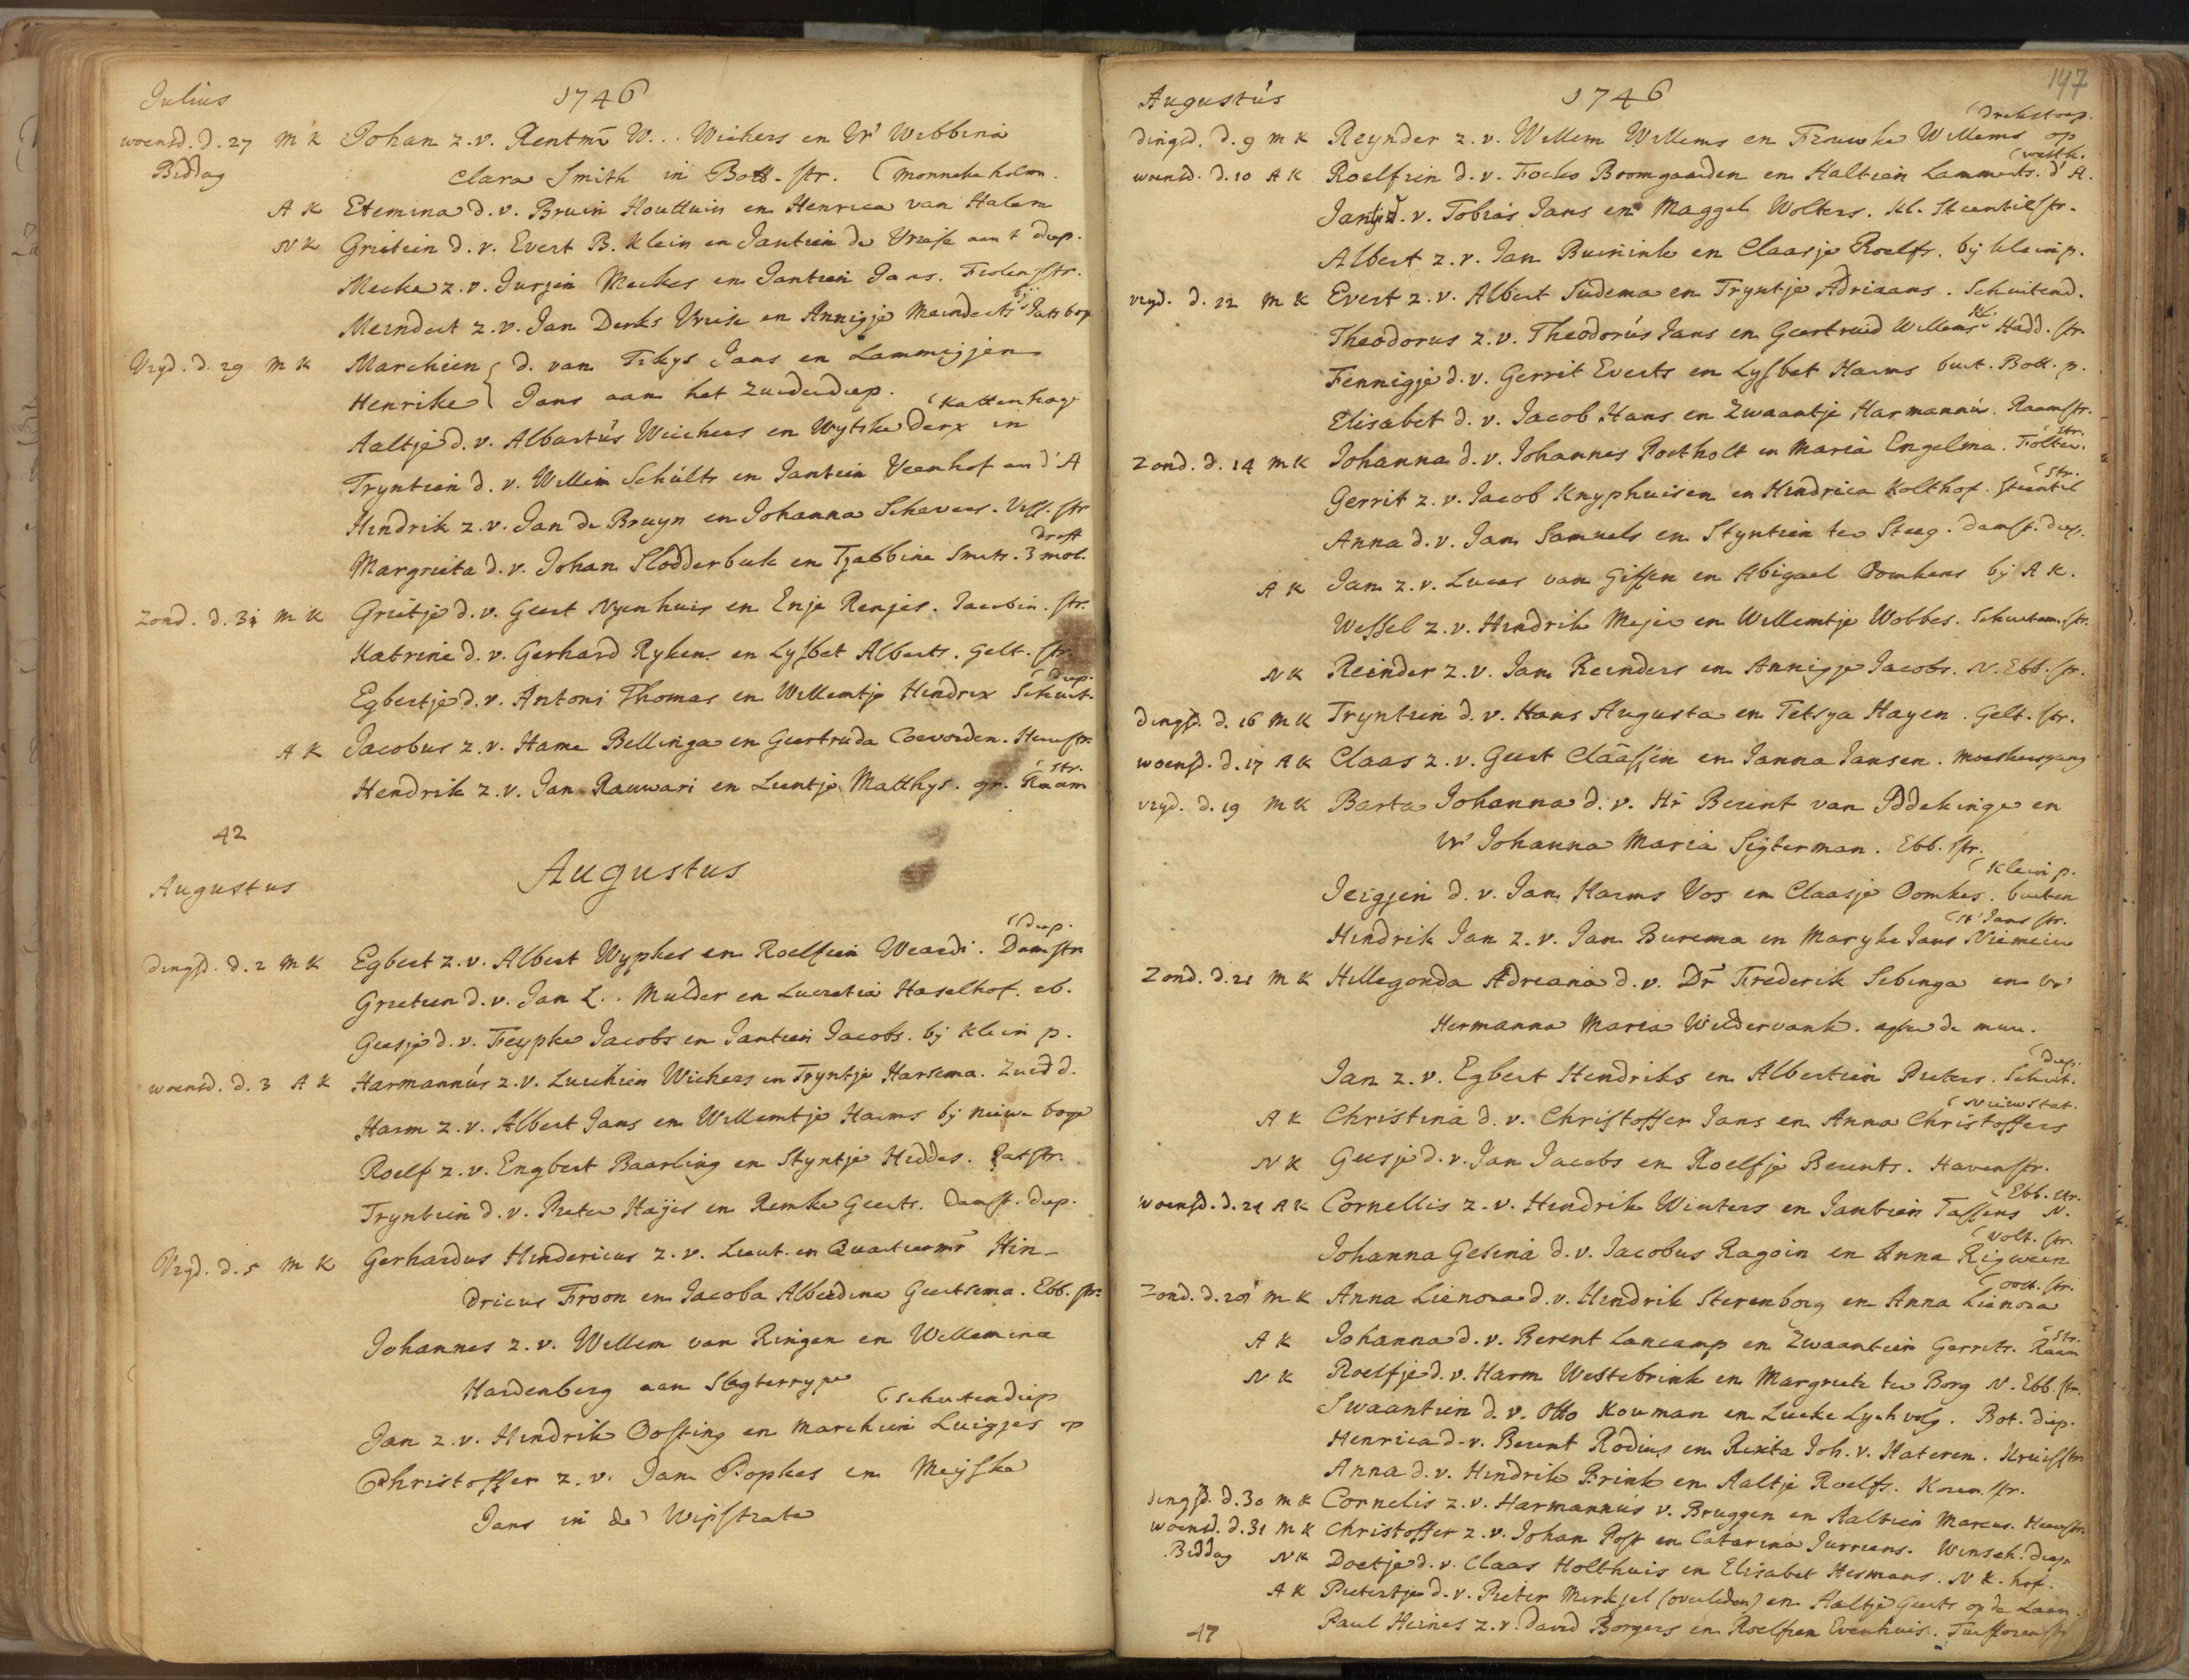 Julius 1746
woensd. d. 27 M K Johan z. v. Rentmr W... Wichers en Vr Wibbina
Biddag Clara Smith in Bott. str. (Monnekeholm
A K Etemina d. v. Bruin Houttuin en Henrica van Halem
N K Grietien d. v. Evert B. Klein en Jantien de Vriese aan t diep.
Meeke z. v. Jurjen Meekes en Jantien Jans. Folingstr.
Meindert z. v. Jan Derks Vriese en Annigje Meinderts bij
Vryd. d. 29 M K Marchien { d. van Tekys Jans en Lammigjen
Henrike { Jans aan het Zuiderdiep. (Kattenhage
Aaltje d. v. Albartus Wichers en Wytske Derx in
Tryntien d. v. Willem Schults en Jantien Veenhof an d' A
Hindrik z. v. Jan de Bruyn en Johanna Schevers. Viss. str
Margrieta d. v. Johan Slodderbeek en Tjabbina Smits. 3 mol.
Zond. d. 31 M K Grietje d. v. Geert Nyenhuis en Enje Renjes. Jacobin. str.
Katrine d. v. Gerhard Rykens en Lysbet Alberts. Gelk. str.
diep.
Egbertje d. v. Antoni Thomas en Willemtje Hindrix Schuit.
A K Jacobus z. v. Hame Bellinga en Geertruda Coevorden. Heerestr.
str.
Hendrik z. v. Jan Rauwari en Leentje Matthys. gr. Raam
42
Augustus Augustus
(diep.
dingsd. d. 2 M K Egbert z. v. Albert Wyphes en Roelfien Weerdi. Damstr
Grietien d. v. Jan L.. Mulder en Lucretia Haselhof. eb.
Geesje d. v. Feypke Jacobs en Jantien Jacobs. bij klein p.
woensd. d. 3 A K Harmannus z. v. Luichien Wichers en Tryntje Harsema. Zuidd.
Harm z. v. Albert Jans en Willemtje Harms bij nieuwe boge
Roelf z. v. Engbert Baarling en Styntje Heddes. Patstr.
Tryntien d. v. Pieter Hayes en Remke Geerts. Damst. diep.
Vryd. d. 5 M K Gerhardus Hindericus z. v. Lieut. en Quartiermr Hin-
dricus Troon en Jacoba Alberdina Geertsema. Ebb. str.
Johannes z. v. Willem van Ringen en Willemina
Hardenberg aan Slogterrype (schuitendiep
Jan z. v. Hindrik Oosting en Marchien Luigjes op
Christoffer z. v. Jan Popkes en Meyske
Jans in de Wipstrate
147
Augustus 1746
dingsd. d. 9 M K Reynder z. v. Willem Willems en Frouwke Willems op
woensd. d. 10 A K Roelfien d. v. Focko Boomgaarden en Aaltien Lammerts. d' A.
Jantje d. v. Tobias Jans en Maggel Wolters. kl. Steentilstr.
Albert z. v. Jan Buinink en Claasje Roelfs. bij klein p.
vryd. d. 12 M K Evert z. v. Albert Sudema en Tryntje Adriaans. Schuitend.
Theodorus z. v. Theodorus Jans en Geertruid Willems kl. Hadd. str.
Fennigje d. v. Gerrit Everts en Lysbet Harms buit. Bott. p.
Elisabet d. v. Jacob Hans en Zwaantje Harmannus. Raamstr.
str.
Zond. d. 14 M K Johanna d. v. Johannes Poetholt en Maria Engelina. Folker.
(str.
Gerrit z. v. Jacob Knyphuisen en Hindrica Kolthof. Steentil
Anna d. v. Jan Samuels en Styntien ter Steeg. Damst. diep.
A K Jan z. v. Lucas van Giffen en Abigael Oomkens bij A K.
Wessel z. v. Hindrik Mejer en Willemtje Wobbes. Schuitem. str.
N K Reinder z. v. Jan Reinders en Annigje Jacobs. N. Ebb. str.
dingsd. d. 16 M K Tryntien d. v. Hans Augusta en Tetsya Hayen. Gelk. str.
woensd. d. 17 A K Claas z. v. Geert Claassen en Janna Jansen. Moeskersgang
vryd. d. 19 M K Barta Johanna d. v. Hr Berent van Iddekinge en
Vr Johanna Maria Sigterman. Ebb. str.
(klein p.
Jeigjen d. v. Jan Harms Vos en Claasje Oomkes. buiten
(St Jans str.
Hindrik Jan z. v. Jan Burema en Maryke Jans Niemeier
Zond. d. 21 M K Hillegonda Adriana d. v. Dr Frederik Sebinga en Vr
Hermanna Maria Wildervank. agter de muur.
(diep.
Jan z. v. Egbert Hendriks en Albertien Pieters. Schuit.
(Nieuwstat.
A K Christina d. v. Christoffer Jans en Anna Christoffers
N K Geesje d. v. Jan Jacobs en Roelfje Berents. Havenstr.
Ebb. str.
woensd. d. 24 A K Cornellis z. v. Hindrik Winters en Jantien Tassens N.
(Volt. str.
Johanna Gesina d. v. Jacobus Ragoin en Anna Rigween
(oost. str.
Zond. d. 28 M K Anna Lienora d. v. Hindrik Sterenborg en Anna Lienora
str.
A K Johanna d. v. Berent Lancamp en Zwaantien Gerrits. Raam
N K Roelfje d. v. Harm Westebrink en Margriete ter Borg N. Ebb. str.
Swaantien d. v. Otto Kouman en Lucke Lychvolg. Bot. diep.
Henrica d. v. Berent Rodius en Rixta Joh. v. Kateren. Kruisstr
Anna d. v. Hindrik Brink en Aaltje Roelfs. Koren. str.
dingsd. d. 30 M K Cornelis z. v. Harmannus v. Bruggen en Aaltien Marcus. Heerestr.
woensd. d. 31 M K Christoffer z. v. Johan Post en Catarina Jurriens. Winsch. diep
Biddag N K Doetje d. v. Claas Holthuis en Elisabet Hesmans. N K. hof.
A K Pietertje d. v. Pieter Merkjel (overleden) en Aaltje Geerts op de Laan.
47 Paul Heines z. v. David Borgers en Roelfien Evenhuis.